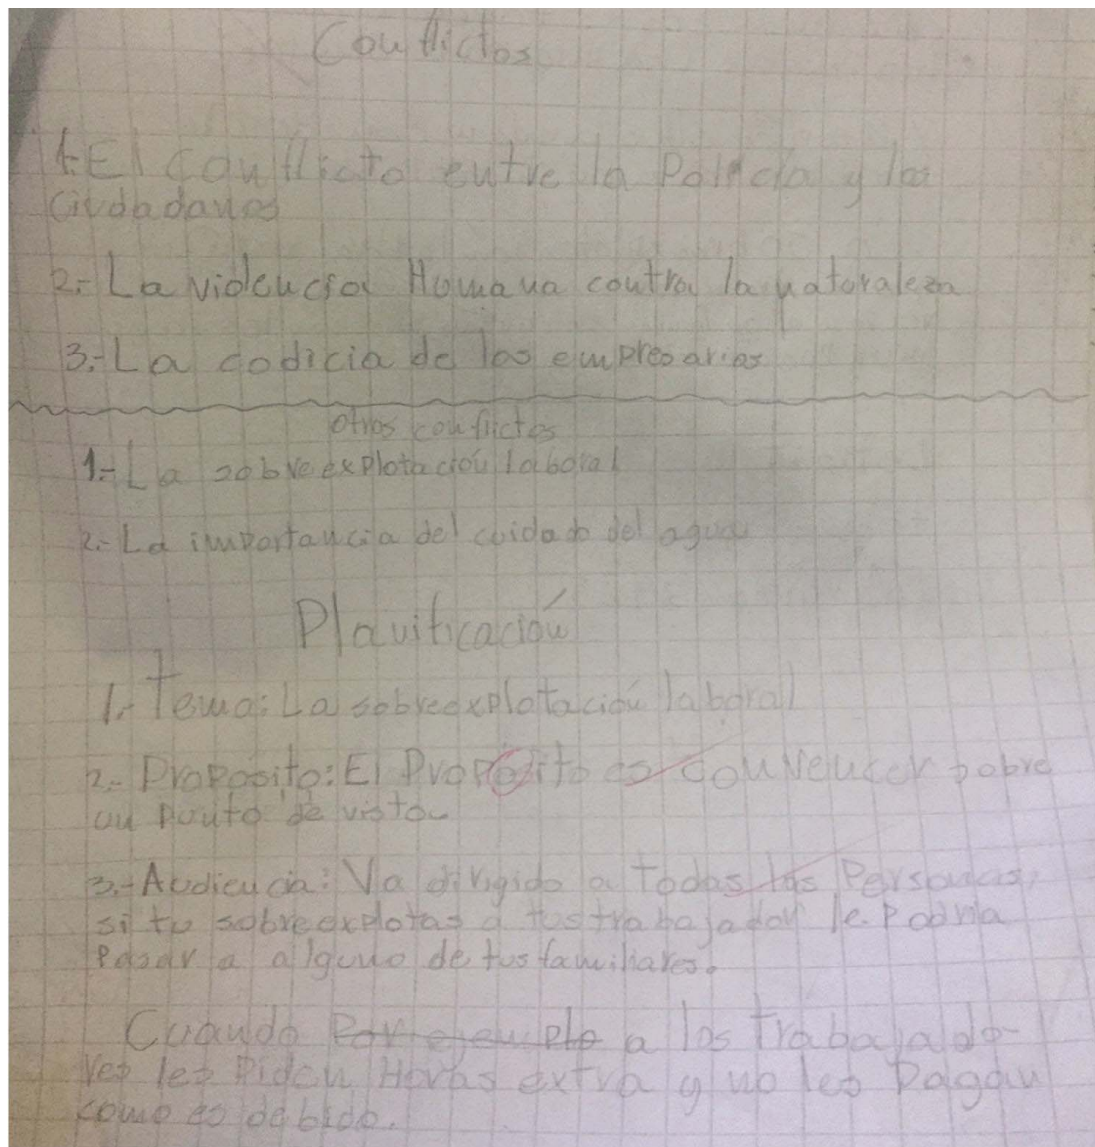 Conflictos
1.-El conflicto entre la Policía y los
Ciudadanos
2.- La violencia Humana contra la naturaleza
3.- La codicia de los empresarios
otros conflictos
1.- La sobreexplotación laboral
2.- La importancia del cuidado del agua
Planificación
1.- Tema: La sobreexplotación laboral
2.- Proposito: El Proposito es convencer sobre
un punto de vista
3.- Audiencia: Va dirigido a Todas las Personas,
si tu sobreexplotas a tus trabajador le Podria
Pasar a alguno de tus familiares.
Cuando Por ejemplo a los Trabajado-
res les Piden Horas extra y no les Pagan
como es debido.